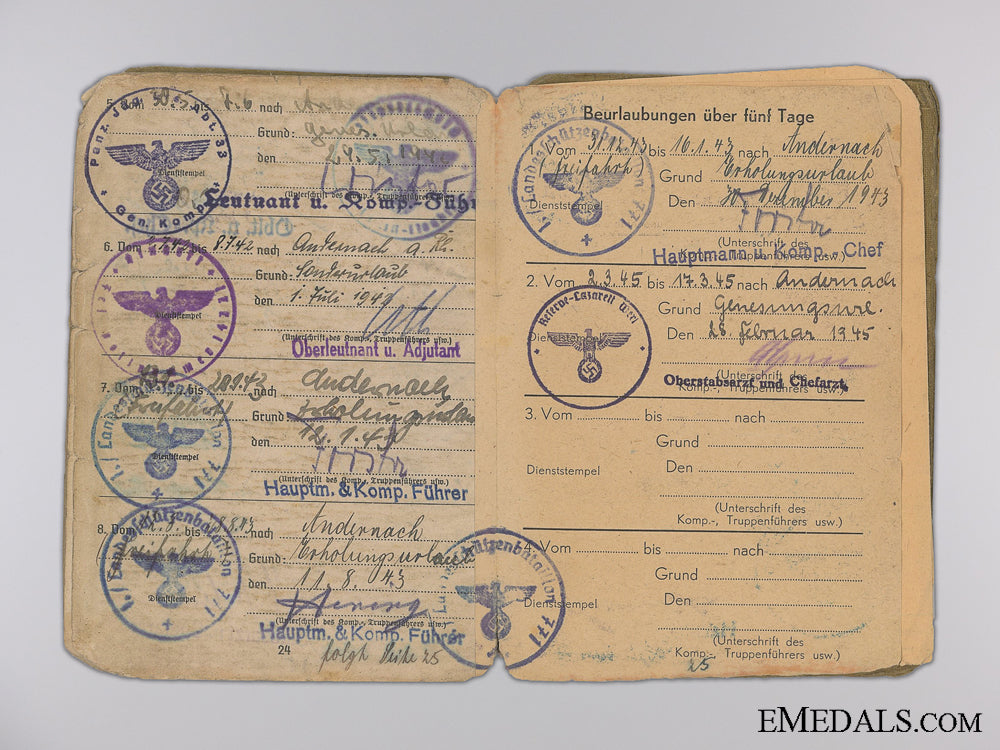 5. Vom 30.5 bis 8.6 nach
Grund: genes.
den
Panz. Jäg. Abt. 33
Gen. Komp.
Dienststempel
(Unterschrift des Komp.-, Truppenführers usw.)
Leutnant u. Komp.-Führ
6. Vom bis 8.7.42 nach Andernach a. Rh.
Grund: Sonderurlaub
den 1. Juli 1942
Dienststempel
(Unterschrift des Komp.-, Truppenführers usw.)
Oberleutnant u. Adjutant
7. Vom bis 28.1.43 nach Andernach
Grund: Erholungsurlaub
den 12.1.43
Dienststempel
(Unterschrift des Komp.-, Truppenführers usw.)
Hauptm. & Komp. Führer
8. Vom bis 8.43 nach Andernach
Freifahrt Grund: Erholungsurlaub
den 11.8.43
1./Landesschützenbataillon 771
Dienststempel
(Unterschrift des Komp.-, Truppenführers usw.)
Hauptm. & Komp. Führer
24
folgt Seite 25
Beurlaubungen über fünf Tage
1. Vom 31.12.43 bis 16.1.43 nach Andernach
(Freifahrt) Grund Erholungsurlaub
Den 30. Dezember 1943
1./Landesschützenbataillon 771
Dienststempel
(Unterschrift des
Komp.-, Truppenführers usw.)
Hauptmann u. Komp.-Chef
2. Vom 2.3.45 bis 17.3.45 nach Andernach
Grund Genesungsurl.
Den 26. Februar 1945
Reserve-Lazarett Werl
Dienststempel
(Unterschrift des
Komp.-, Truppenführers usw.)
Oberstabsarzt und Chefarzt
3. Vom bis nach
Grund
Dienststempel Den
(Unterschrift des
Komp.-, Truppenführers usw.)
4. Vom bis nach
Grund
Dienststempel Den
(Unterschrift des
Komp.-, Truppenführers usw.)
25
EMEDALS.COM